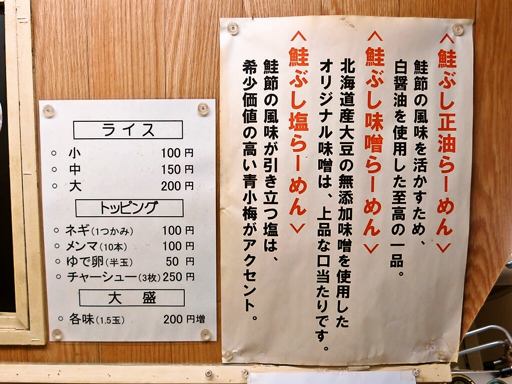 ライス
○ 小 100円
○ 中 150円
○ 大 200円
トッピング
○ ネギ(1つかみ) 100円
○ メンマ(10本) 100円
○ ゆで卵(半玉) 50円
○ チャーシュー(3枚) 250円
大 盛
○ 各味(1.5玉) 200円増
<鮭ぶし正油らーめん>
鮭節の風味を活かすため、
白醤油を使用した至高の一品。
<鮭ぶし味噌らーめん>
北海道産大豆の無添加味噌を使用した
オリジナル味噌は、上品な口当たりです。
<鮭ぶし塩らーめん>
鮭節の風味が引き立つ塩は、
希少価値の高い青小梅がアクセント。